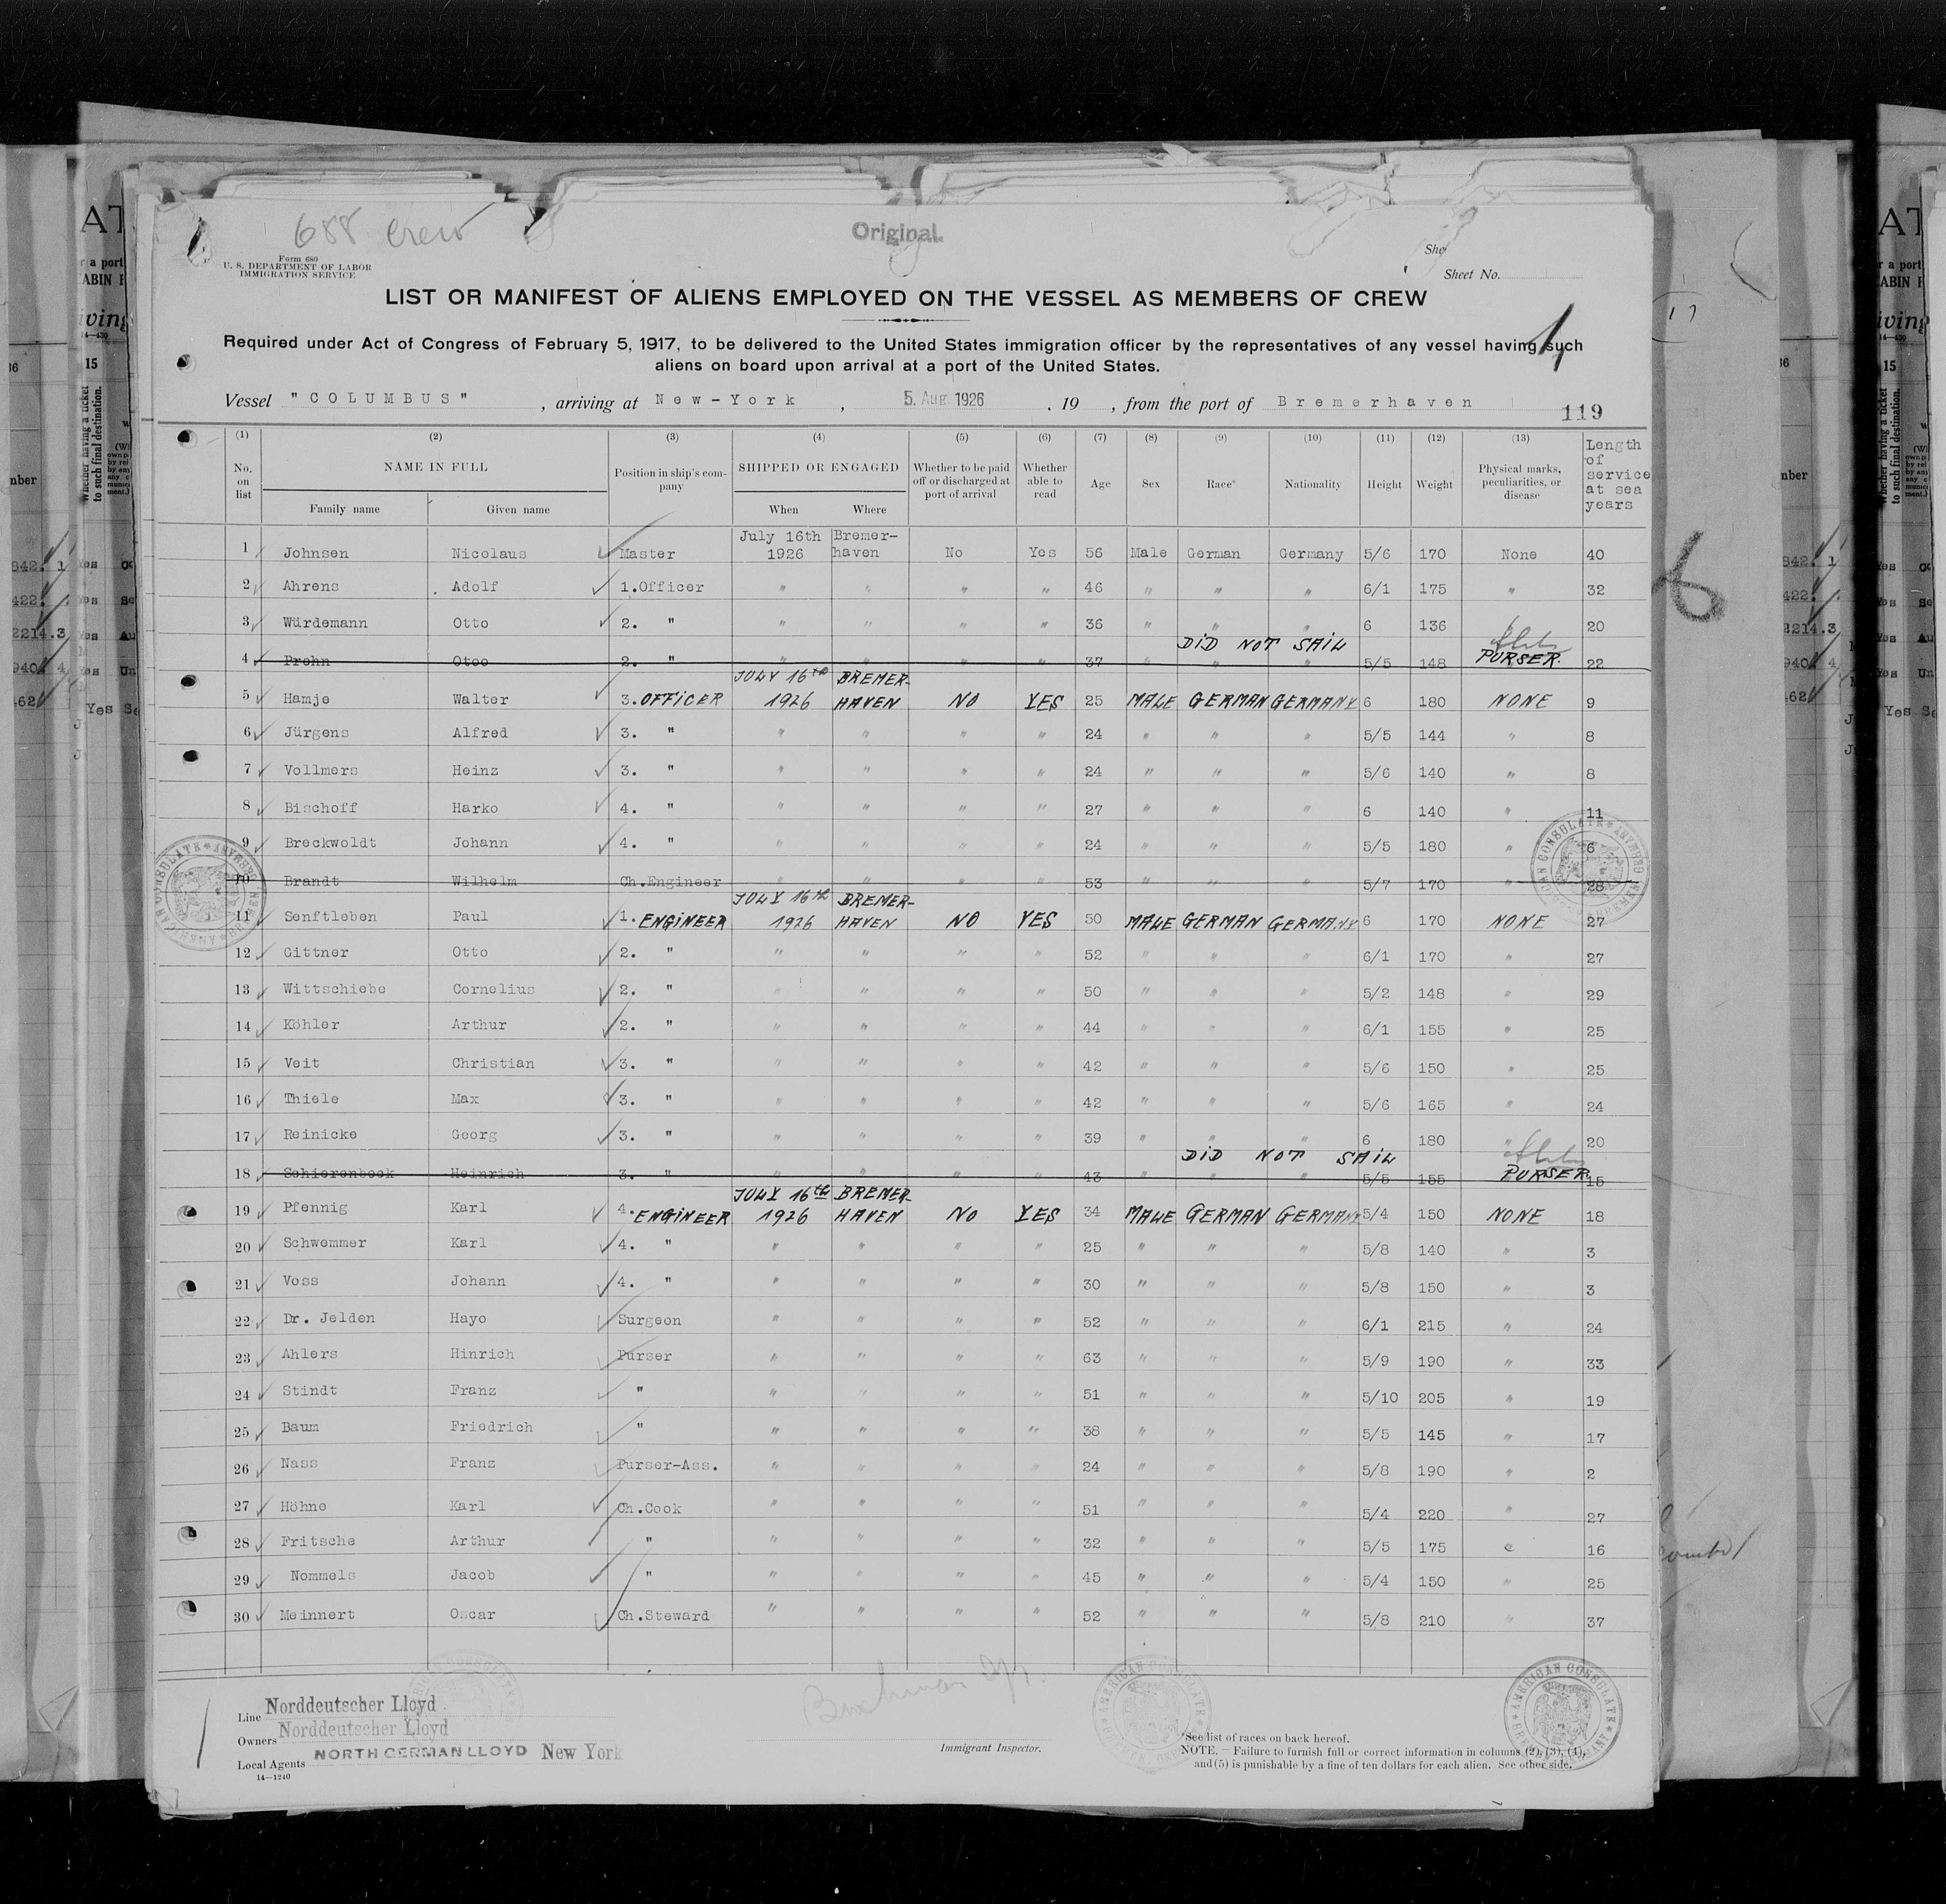 688 crew
Original
Form 680
U. S. DEPARTMENT OF LABOR
IMMIGRATION SERVICE
She
Sheet No.
LIST OR MANIFEST OF ALIENS EMPLOYED ON THE VESSEL AS MEMBERS OF CREW
Required under Act of Congress of February 5, 1917, to be delivered to the United States immigration officer by the representatives of any vessel having such
aliens on board upon arrival at a port of the United States.
Vessel "COLUMBUS" , arriving at New-York , 5. Aug 1926 , 19 , from the port of Bremerhaven
119
(1) (2) (3) (4) (5) (6) (7) (8) (9) (10) (11) (12) (13)
No. on list NAME IN FULL Family name Given name Position in ship's company SHIPPED OR ENGAGED When Where Whether to be paid off or discharged at port of arrival Whether able to read Age Sex Race* Nationality Height Weight Physical marks, peculiarities, or disease Length of service at sea years
1 Johnsen Nicolaus Master July 16th 1926 Bremer-haven No Yes 56 Male German Germany 5/6 170 None 40
2 Ahrens Adolf 1.Officer " " " " 46 " " " 6/1 175 " 32
3 Würdemann Otto 2. " " " " " 36 " " " 6 136 " 20
DID NOT SAIL
4 Prehn Otoo 2. " " " " " 37 " " " 5/5 148 PURSER. 22
5 Hamje Walter 3. OFFICER JULY 16th 1926 BREMER-HAVEN NO YES 25 MALE GERMAN GERMANY 6 180 NONE 9
6 Jürgens Alfred 3. " " " " " 24 " " " 5/5 144 " 8
7 Vollmers Heinz 3. " " " " " 24 " " " 5/6 140 " 8
8 Bischoff Harko 4. " " " " " 27 " " " 6 140 " 11
9 Breckwoldt Johann 4. " " " " " 24 " " " 5/5 180 " 6
10 Brandt Wilhelm Ch.Engineer " " " " 53 " " " 5/7 170 " 28
11 Senftleben Paul 1. ENGINEER JULY 16th 1926 BREMER-HAVEN NO YES 50 MALE GERMAN GERMANY 6 170 NONE 27
12 Gittner Otto 2. " " " " " 52 " " " 6/1 170 " 27
13 Wittschiebe Cornelius 2. " " " " " 50 " " " 5/2 148 " 29
14 Köhler Arthur 2. " " " " " 44 " " " 6/1 155 " 25
15 Veit Christian 3. " " " " " 42 " " " 5/6 150 " 25
16 Thiele Max 3. " " " " " 42 " " " 5/6 165 " 24
17 Reinicke Georg 3. " " " " " 39 " " " 6 180 " 20
DID NOT SAIL
18 Schierenbeck Heinrich 3. " " " " " 43 5/5 155 PURSER 15
19 Pfennig Karl 4. ENGINEER JULY 16th 1926 BREMER-HAVEN NO YES 34 MALE GERMAN GERMANY 5/4 150 NONE 18
20 Schwemmer Karl 4. " " " " " 25 " " " 5/8 140 " 3
21 Voss Johann 4. " " " " " 30 " " " 5/8 150 " 3
22 Dr. Jelden Hayo Surgeon " " " " 52 " " " 6/1 215 " 24
23 Ahlers Hinrich Purser " " " " 63 " " " 5/9 190 " 33
24 Stindt Franz " " " " " 51 " " " 5/10 205 " 19
25 Baum Friedrich " " " " " 38 " " " 5/5 145 " 17
26 Nass Franz Purser-Ass. " " " " 24 " " " 5/8 190 " 2
27 Höhne Karl Ch.Cook " " " " 51 " " " 5/4 220 " 27
28 Fritsche Arthur " " " " " 32 " " " 5/5 175 " 16
29 Nommels Jacob " " " " " 45 " " " 5/4 150 " 25
30 Meinnert Oscar Ch.Steward " " " " 52 " " " 5/8 210 " 37
Line Norddeutscher Lloyd
Owners Norddeutscher Lloyd
Local Agents NORTH GERMAN LLOYD New York
14—1240
Immigrant Inspector.
*See list of races on back hereof.
NOTE.—Failure to furnish full or correct information in columns (2), (3), (4),
and (5) is punishable by a fine of ten dollars for each alien. See other side.
AMERICAN CONSULATE